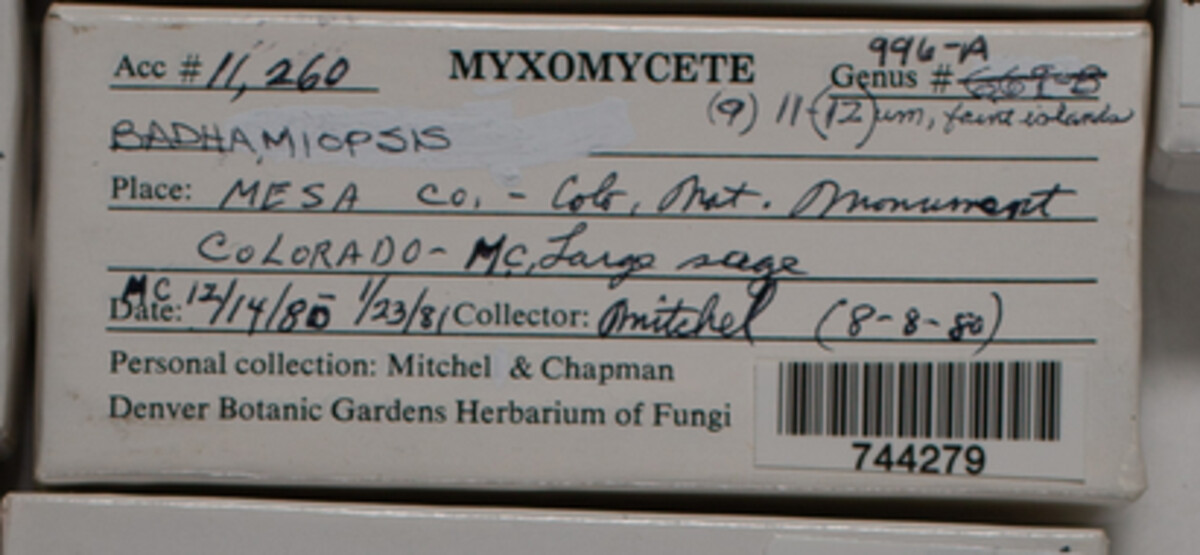 996-A
Acc # 11,260 MYXOMYCETE Genus # 669-B
(9) 11-(12)um, faint islands
BADHAMIOPSIS
Place: MESA CO. - Colo, Nat. Monument
COLORADO - MC, Large sage
MC
Date: 12/14/80 1/23/81 Collector: Mitchel (8-8-80)
Personal collection: Mitchel & Chapman
Denver Botanic Gardens Herbarium of Fungi
744279